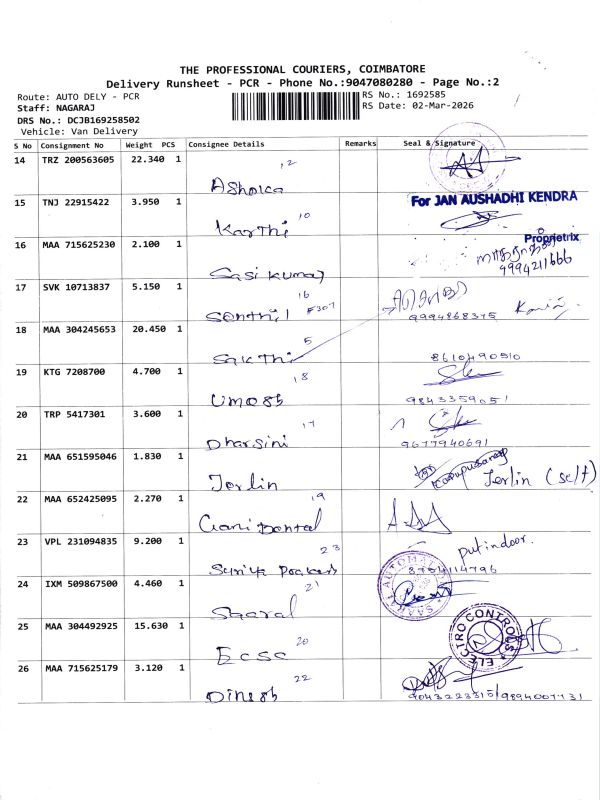 THE PROFESSIONAL COURIERS, COIMBATORE
Delivery Runsheet - PCR - Phone No.:9047080280 - Page No.:2
Route: AUTO DELY - PCR
RS No.: 1692585
Staff: NAGARAJ
RS Date: 02-Mar-2026
DRS No.: DCJB169258502
Vehicle: Van Delivery
S No Consignment No Weight PCS Consignee Details Remarks Seal & Signature
14 TRZ 200563605 22.340 1
12
Asholca
15 TNJ 22915422 3.950 1
For JAN AUSHADHI KENDRA
10
Karthi
16 MAA 715625230 2.100 1
Proprietrix
9994211666
Sasi kumar
17 SVK 10713837 5.150 1
16
Senthil F307
9994868375
18 MAA 304245653 20.450 1
5
Sakthi
8610490510
19 KTG 7208700 4.700 1
18
9843359051
20 TRP 5417301 3.600 1
17
Dharsini
9677940691
21 MAA 651595046 1.830 1
Jerlin
Jerlin (self)
22 MAA 652425095 2.270 1
19
23 VPL 231094835 9.200 1
put indoor.
23
8754114796
24 IXM 509867500 4.460 1
21
25 MAA 304492925 15.630 1
ELECTRO CONTROLS
20
Ecsc
26 MAA 715625179 3.120 1
22
9043223315/9894007731